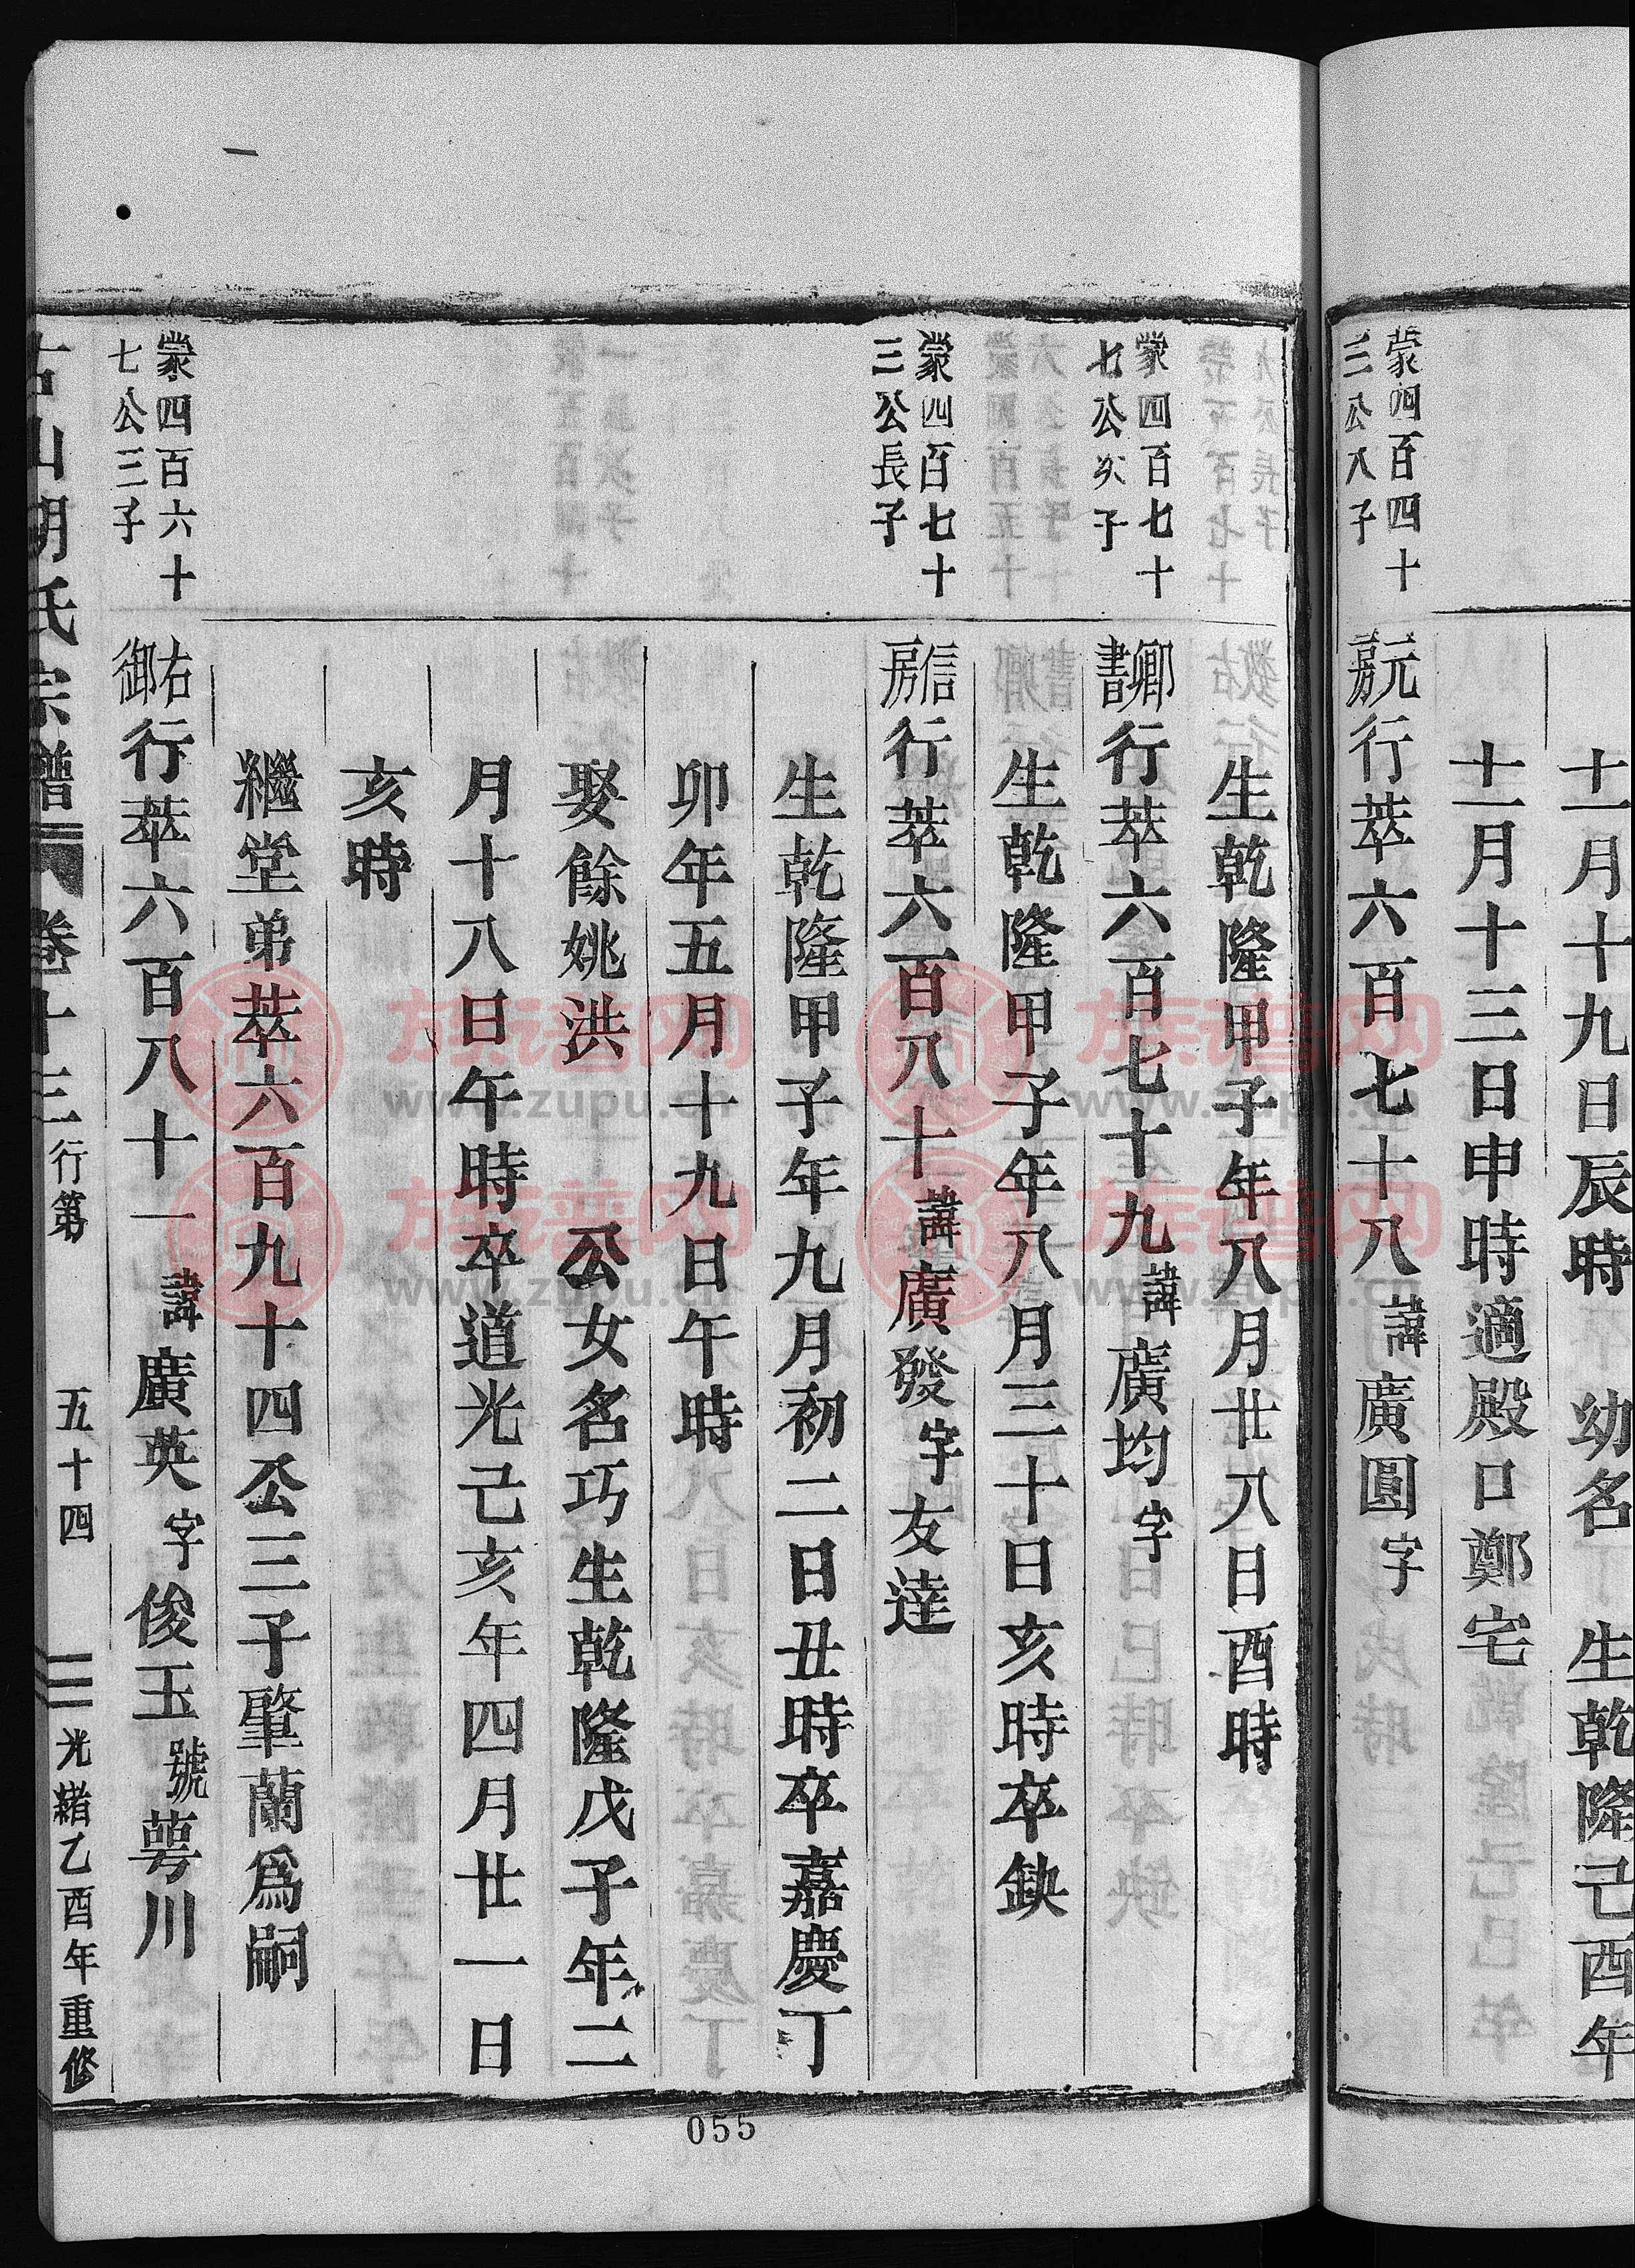 十一月十九日辰時　幼名　生乾隆己酉年
十一月十三日申時適殿口鄭宅
蒙四百四十
三公八子
元房行萃六百七十八諱廣圓字
生乾隆甲子年八月廿八日酉時
蒙四百七十
七公次子
卿書行萃六百七十九諱廣均字
生乾隆甲子年八月三十日亥時卒缺
蒙四百七十
三公長子
信房行萃六百八十諱廣發字友達
生乾隆甲子年九月初二日丑時卒嘉慶丁
卯年五月十九日午時
娶餘姚洪　公女名巧生乾隆戊子年二
月十八日午時卒道光己亥年四月廿一日
亥時
繼堂弟萃六百九十四公三子肇蘭爲嗣
蒙四百六十
七公三子
右御行萃六百八十一諱廣英字俊玉號萼川
古山胡氏宗譜　卷十三　行第　五十四　光緒乙酉年重修
055
族谱网
www.zupu.cn
族谱网
www.zupu.cn
族谱网
www.zupu.cn
族谱网
www.zupu.cn